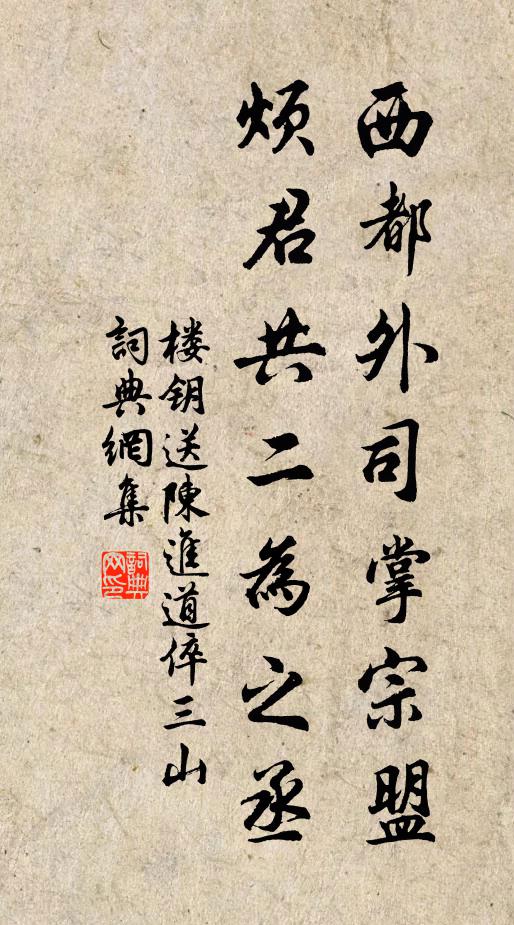 西都外司掌宗盟
煩君共二為之丞
楼钥送陳進道倅三山
詞典網集
詞典
网印